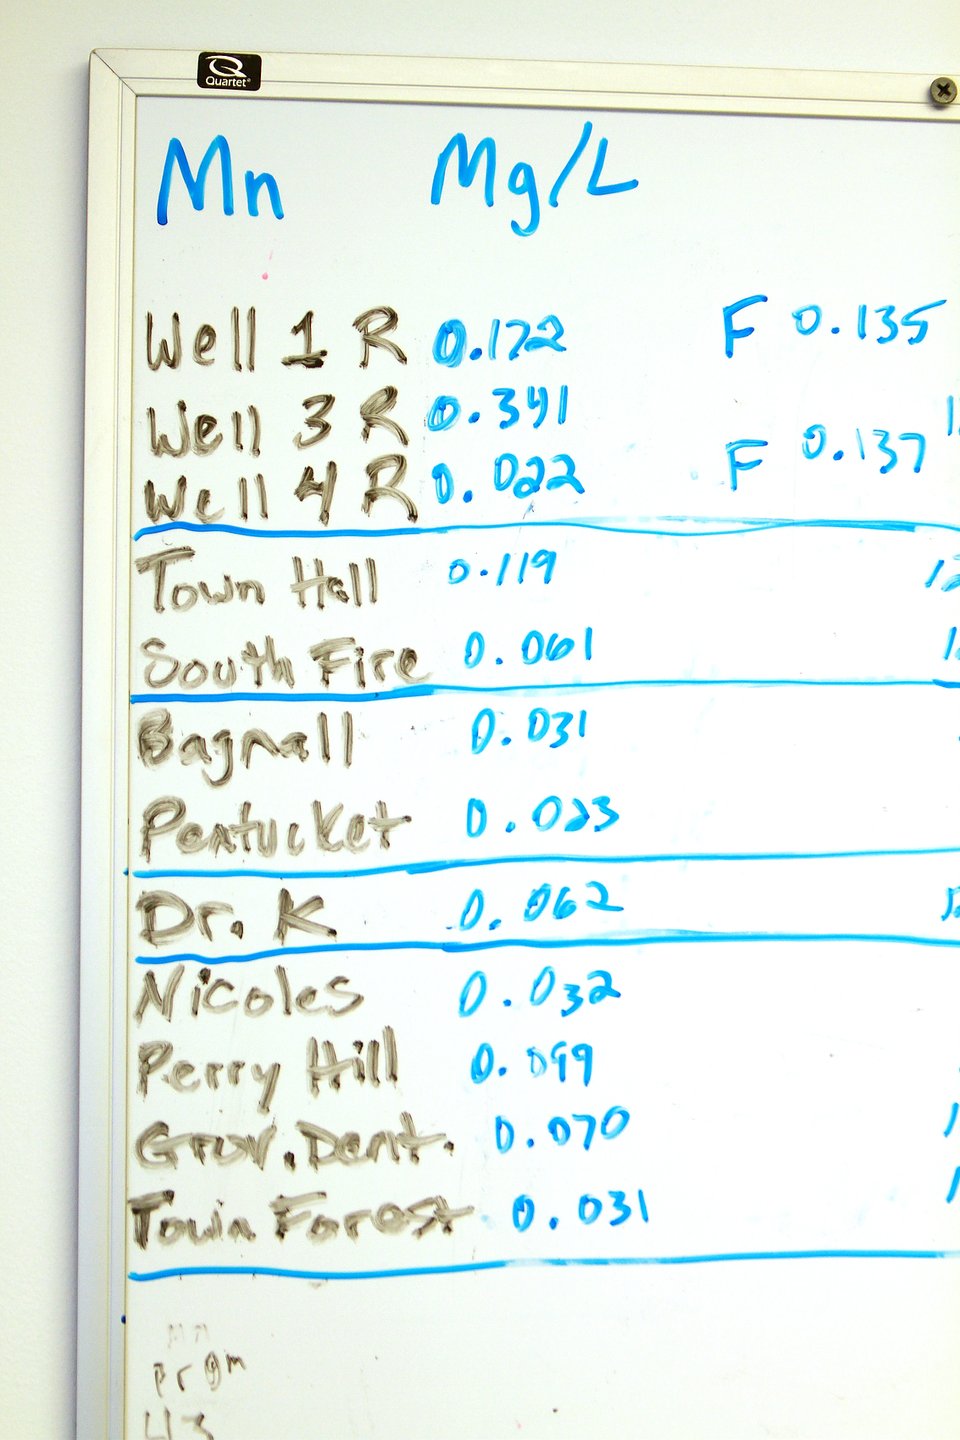 Quartet
Mn Mg/L
Well 1 R 0.172 F 0.135
Well 3 R 0.341
Well 4 R 0.022 F 0.137
Town Hall 0.119
South Fire 0.061
Bagnall 0.031
Pentucket 0.023
Dr. K 0.062
Nicoles 0.032
Perry Hill 0.099
Grov. Dent. 0.070
Town Forest 0.031
43